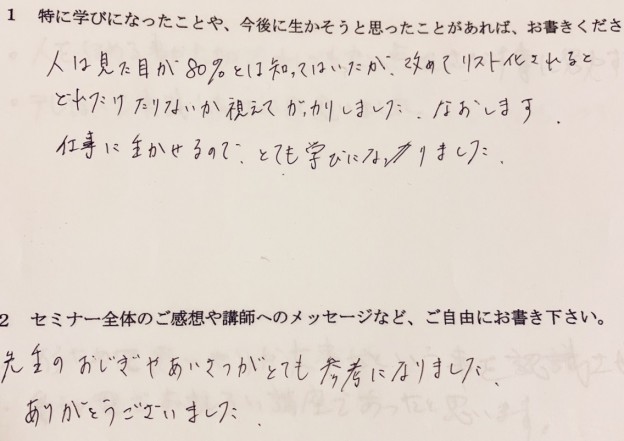 1 特に学びになったことや、今後に生かそうと思ったことがあれば、お書きくださ
人は見た目が80%とは知ってはいたが、改めてリスト化されると
どれだけたりないか視えてがっかりしました。なおします。
仕事に生かせるので、とても学びになりました。
2 セミナー全体のご感想や講師へのメッセージなど、ご自由にお書き下さい。
先生のおじぎやあいさつがとても参考になりました。
ありがとうございました。